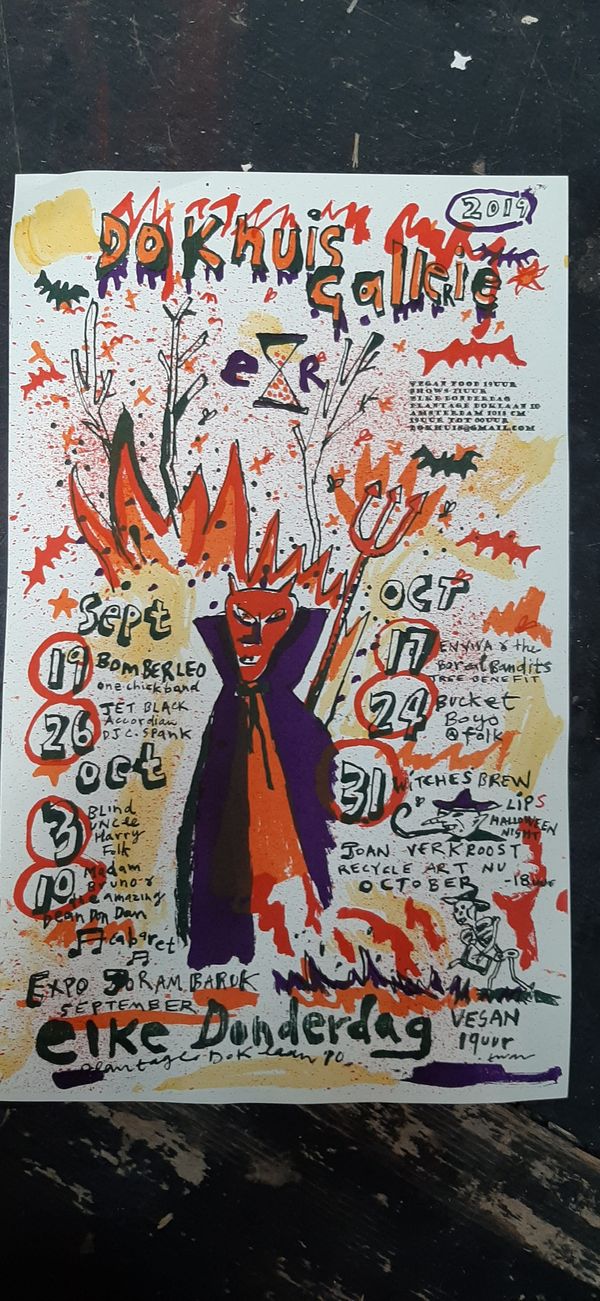 2019
DOKhuis
GalleRie
VEGAN FOOD 19UUR
SHOWS 21UUR
ELKE DONDERDAG
PLANTAGE DOKLAAN 10
AMSTERDAM 1018 CM
19UUR TOT 00UUR
DOKHUIS@GMAIL.COM
Sept
19 BOMBERLEO
one chick band
26 JET BLACK
Accordian
DJ C. Spank
oct
3 BLind
UNCLE
Harry
Folk
10 Madam
Bruno &
the amazing
Dean Don Dan
cabaret
EXPO JORAM BARUK
SEPTEMBER
OCT
17 & the
Boreal Bandits
TREE BENEFIT
24 Bucket
Boyo
@ folk
31 WITCHES BREW
LIPS
HALLOWEEN
NIGHT
JOAN VERKROOST
RECYCLE ART NU
OCTOBER
elke Donderdag
Plantage Doklaan 10
VEGAN
19uur